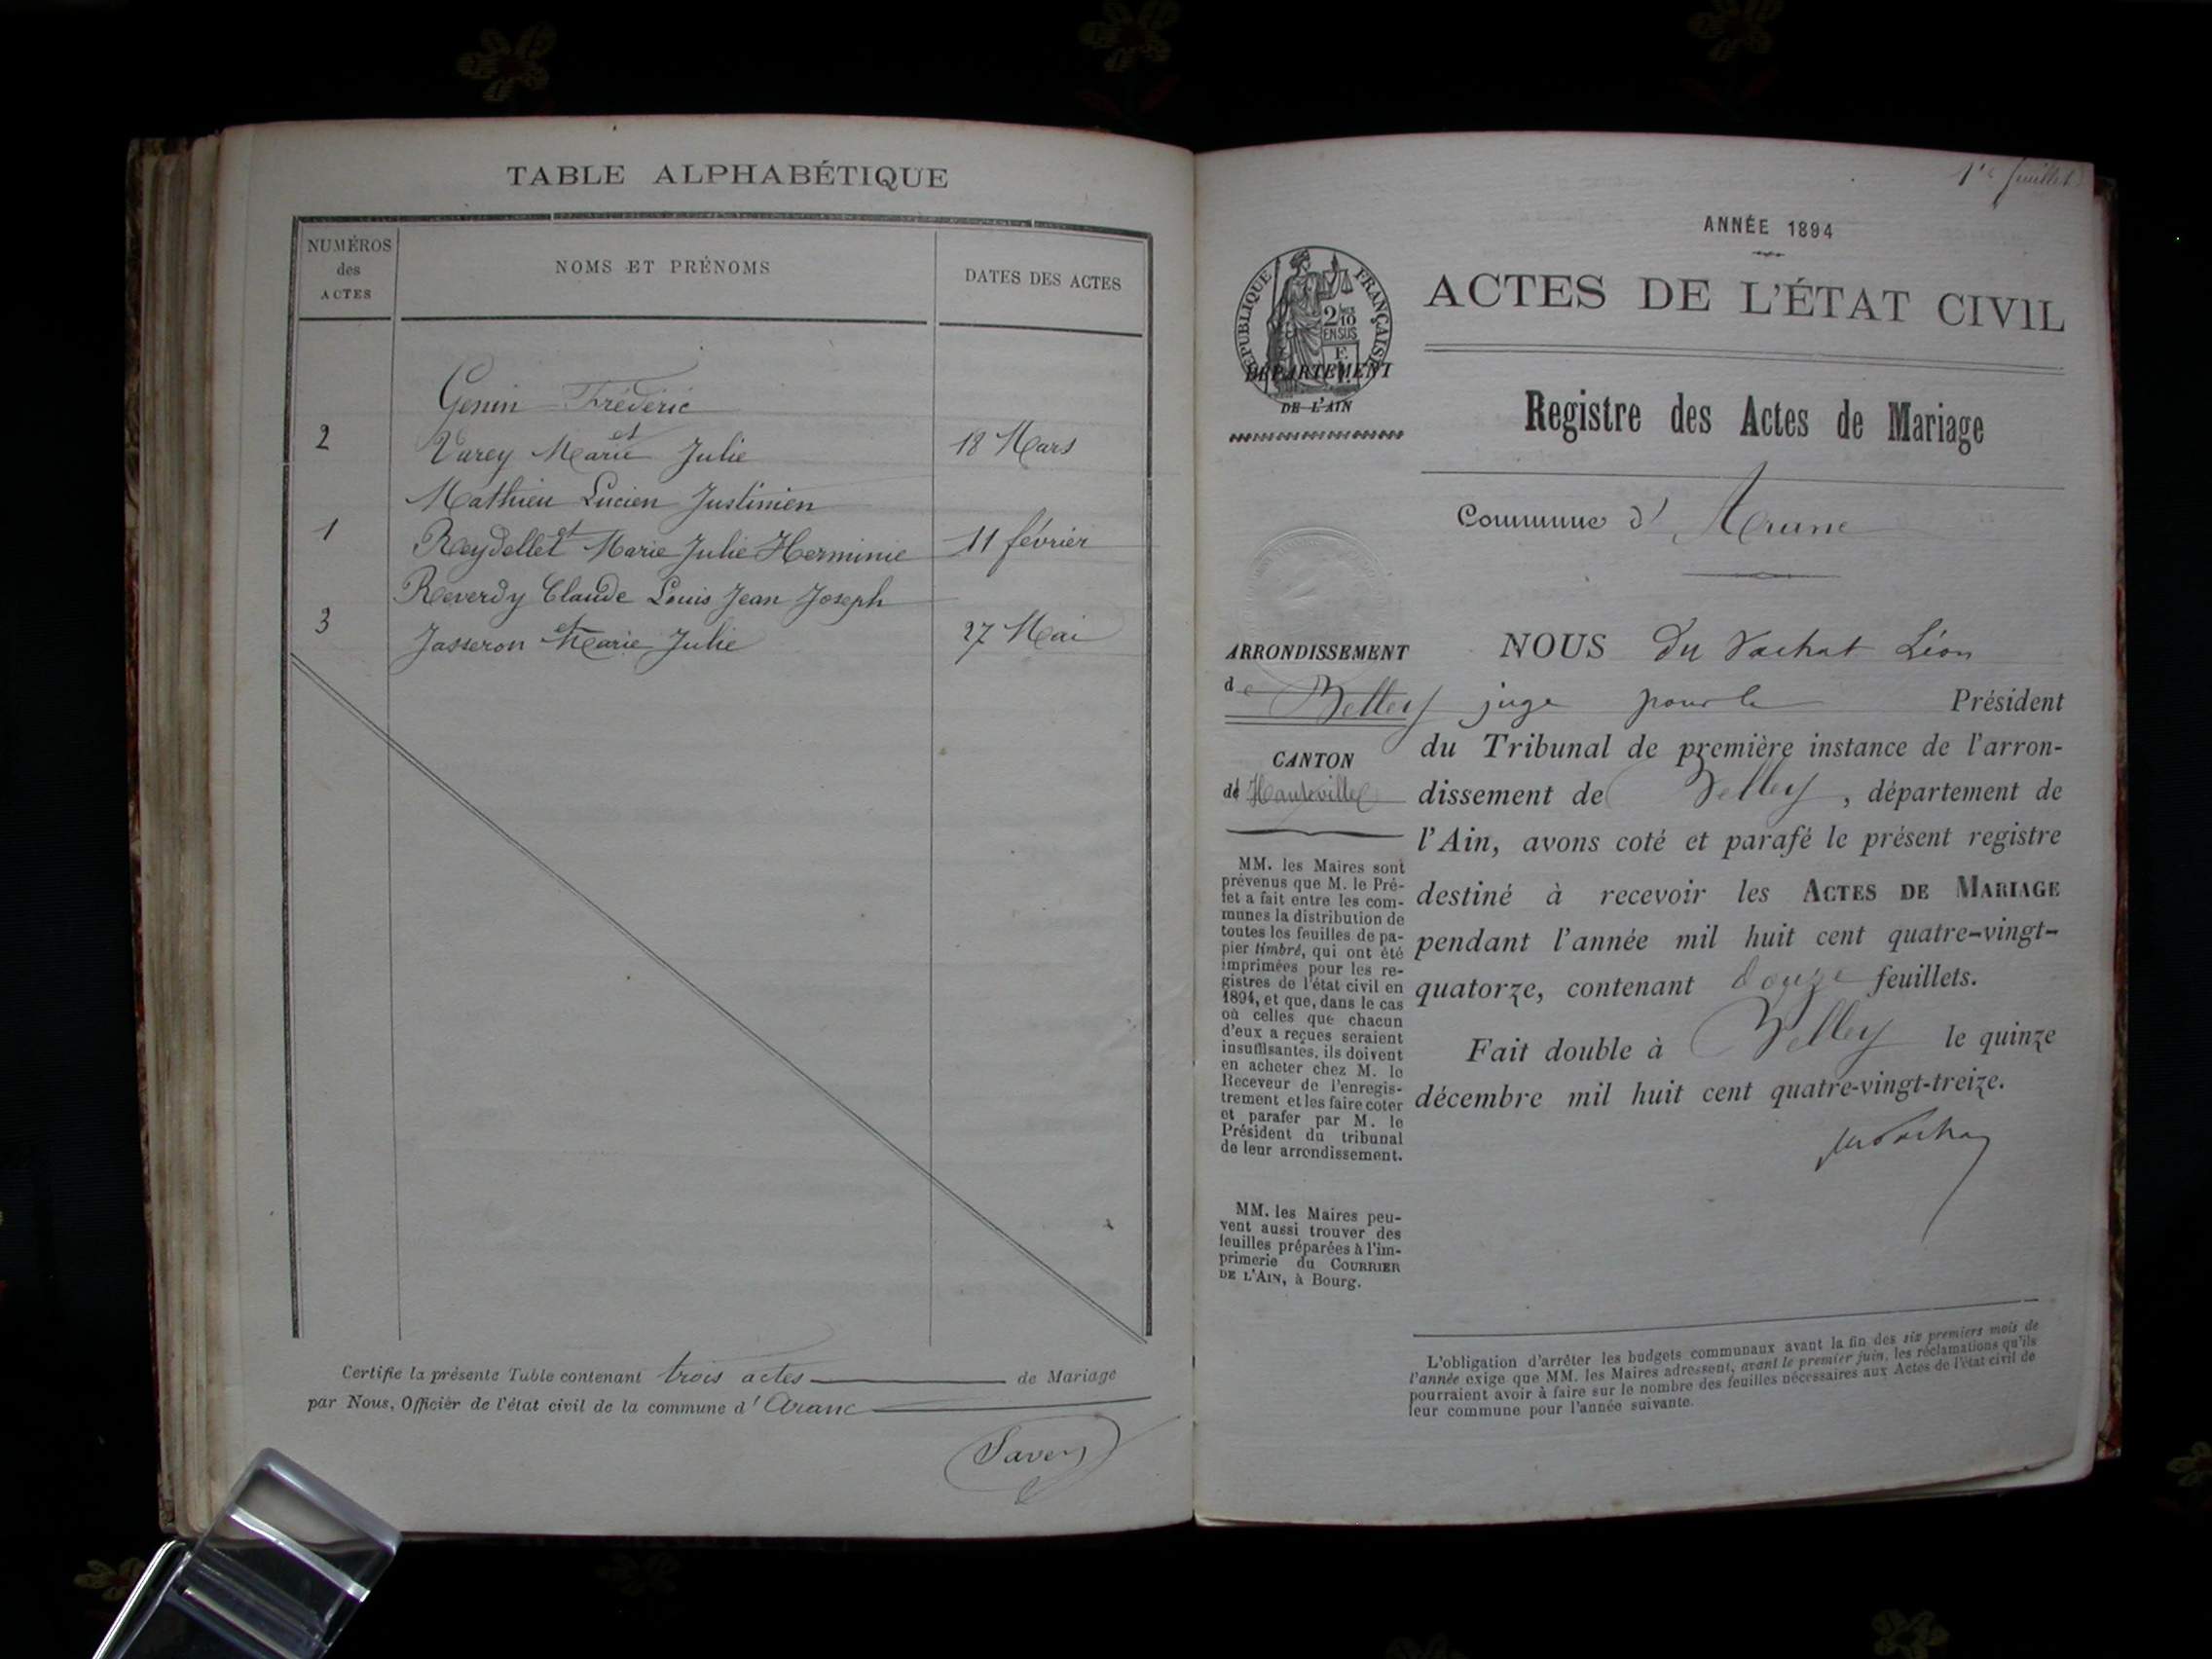 TABLE ALPHABÉTIQUE
NUMÉROS
des
ACTES
NOMS ET PRÉNOMS
DATES DES ACTES
Genin Frédéric
et
2 Varey Marie Julie 18 Mars
Mathieu Lucien Justinien
et
1 Reydellet Marie Julie Herminie 11 février
Reverdy Claude Louis Jean Joseph
et
3 Jasseron Marie Julie 27 Mai
Certifie la présente Table contenant trois actes de Mariage
par Nous, Officier de l'état civil de la commune d'Aranc
Savey
1er feuillet
ANNÉE 1894
RÉPUBLIQUE FRANÇAISE
2/10
EN SUS
DÉPARTEMENT
DE L'AIN
ACTES DE L'ÉTAT CIVIL
Registre des Actes de Mariage
Commune d' Aranc
ARRONDISSEMENT
de Belley
CANTON
de Hauteville
MM. les Maires sont
prévenus que M. le Pré-
fet a fait entre les com-
munes la distribution de
toutes les feuilles de pa-
pier timbré, qui ont été
imprimées pour les re-
gistres de l'état civil en
1894, et que, dans le cas
où celles que chacun
d'eux a reçues seraient
insuffisantes, ils doivent
en acheter chez M. le
Receveur de l'enregis-
trement et les faire coter
et parafer par M. le
Président du tribunal
de leur arrondissement.
MM. les Maires peu-
vent aussi trouver des
feuilles préparées à l'im-
primerie du COURRIER
DE L'AIN, à Bourg.
NOUS du Vachat Léon
juge pour le Président
du Tribunal de première instance de l'arron-
dissement de Belley, département de
l'Ain, avons coté et parafé le présent registre
destiné à recevoir les ACTES DE MARIAGE
pendant l'année mil huit cent quatre-vingt-
quatorze, contenant douze feuillets.
Fait double à Belley le quinze
décembre mil huit cent quatre-vingt-treize.
du Vachat
L'obligation d'arrêter les budgets communaux avant la fin des six premiers mois de
l'année exige que MM. les Maires adressent, avant le premier juin, les réclamations qu'ils
pourraient avoir à faire sur le nombre des feuilles nécessaires aux Actes de l'état civil de
leur commune pour l'année suivante.